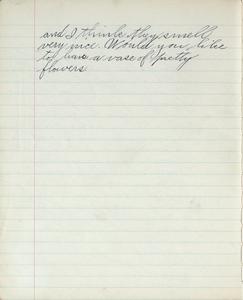 and I think they smell
very nice. Would you like
to have a vase of pretty
flowers